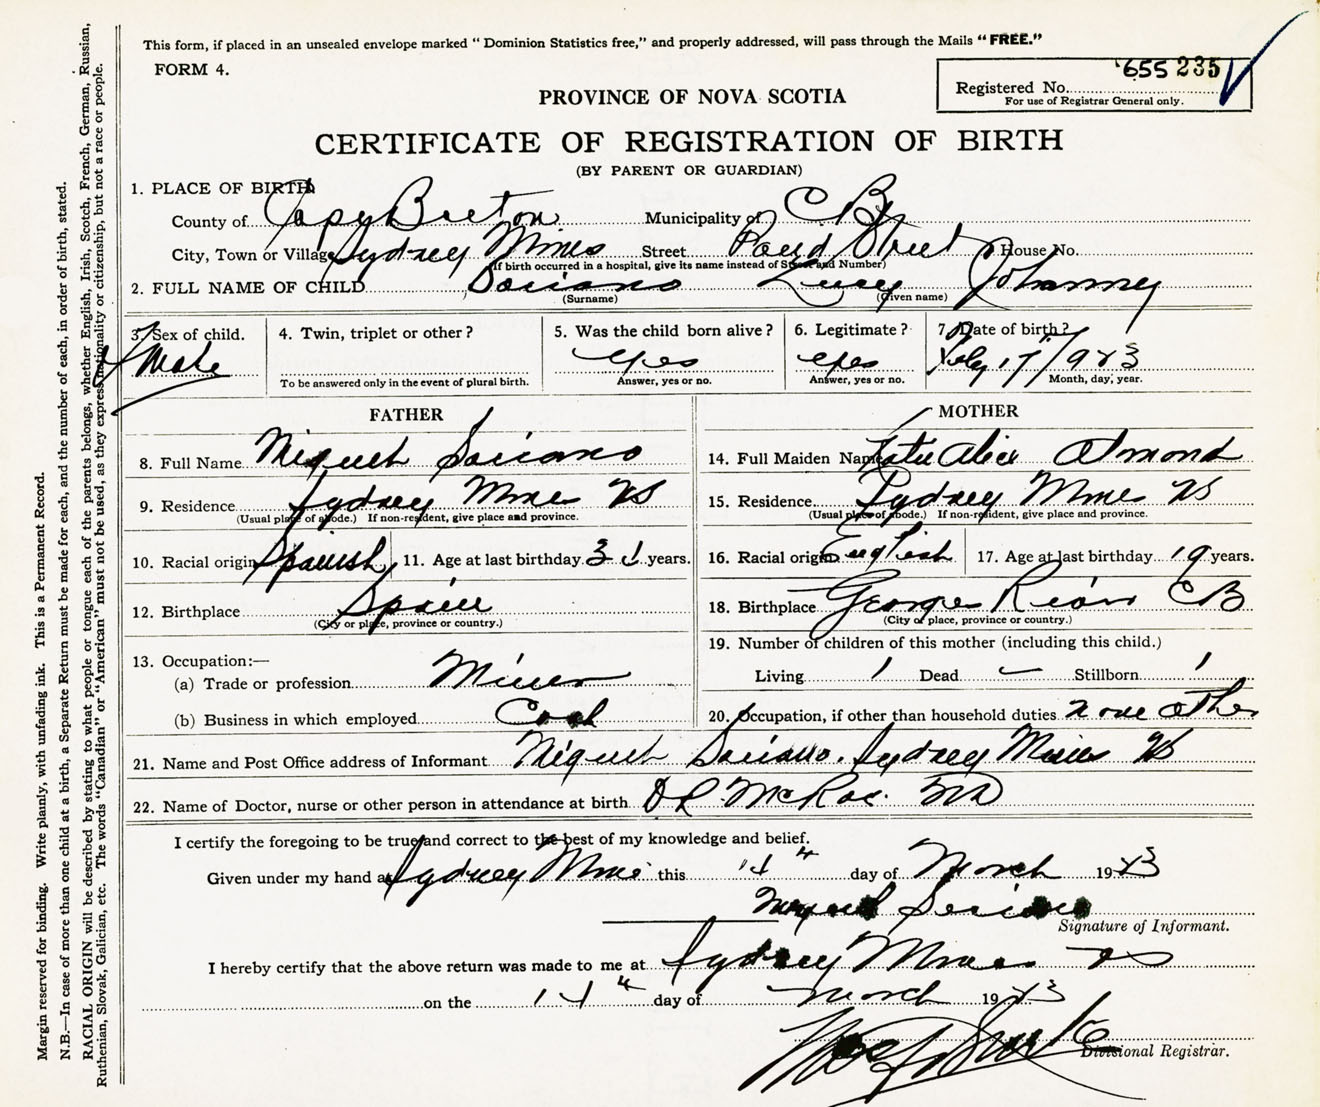 This form, if placed in an unsealed envelope marked "Dominion Statistics free," and properly addressed, will pass through the Mails "FREE."
FORM 4.
655 235
Registered No.
For use of Registrar General only.
PROVINCE OF NOVA SCOTIA
CERTIFICATE OF REGISTRATION OF BIRTH
(BY PARENT OR GUARDIAN)
1. PLACE OF BIRTH
County of Cape Breton Municipality of C B
City, Town or Village Sydney Mines Street Street House No.
(If birth occurred in a hospital, give its name instead of Street and Number)
2. FULL NAME OF CHILD Soriano Lucy Johanney
(Surname) (Given name)
3. Sex of child. 4. Twin, triplet or other? 5. Was the child born alive? 6. Legitimate? 7. Date of birth?
yes yes 17/1923
To be answered only in the event of plural birth. Answer, yes or no. Answer, yes or no. Month, day, year.
FATHER MOTHER
8. Full Name Miguel Soriano 14. Full Maiden Name Katie Alice Almond
9. Residence Sydney Mines NS 15. Residence Sydney Mines NS
(Usual place of abode.) If non-resident, give place and province. (Usual place of abode.) If non-resident, give place and province.
10. Racial origin Spanish 11. Age at last birthday 31 years. 16. Racial origin English 17. Age at last birthday 19 years.
12. Birthplace Spain 18. Birthplace Georges River CB
(City or place, province or country.) (City or place, province or country.)
13. Occupation:— 19. Number of children of this mother (including this child.)
(a) Trade or profession Miner Living 1 Dead — Stillborn 1
(b) Business in which employed Coal 20. Occupation, if other than household duties none other
21. Name and Post Office address of Informant Miguel Soriano. Sydney Mines NS
22. Name of Doctor, nurse or other person in attendance at birth DR McRae MD
I certify the foregoing to be true and correct to the best of my knowledge and belief.
Given under my hand at Sydney Mines this 14" day of March 1923
Miguel Soriano
Signature of Informant.
I hereby certify that the above return was made to me at Sydney Mines NS
on the 14" day of March 1923
Divisional Registrar.
Margin reserved for binding. Write plainly, with unfading ink. This is a Permanent Record.
N.B.—In case of more than one child at a birth, a Separate Return must be made for each, and the number of each, in order of birth, stated.
RACIAL ORIGIN will be described by stating to what people or tongue each of the parents belongs, whether English, Irish, Scotch, French, German, Russian,
Ruthenian, Slovak, Galician, etc. The words "Canadian" or "American" must not be used, as they express nationality or citizenship, but not a race or people.